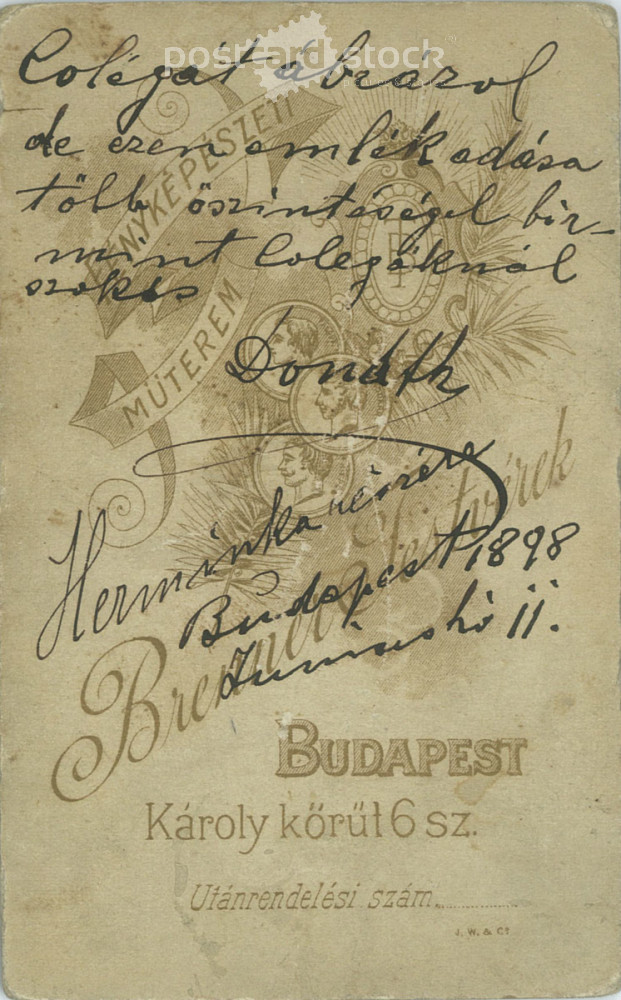 postcard stock
Colégát ábrázol
de ezen emlék adása
több őszinteségel bir-
mint Colegáknál
szokás
Donáth
Herminka részére
Budapest 1898
Junius hó 11.
FÉNYKÉPÉSZETI
MŰTEREM
Brenner Testvérek
BUDAPEST
Károly körút 6 sz.
Utánrendelési szám
J. W. & Co